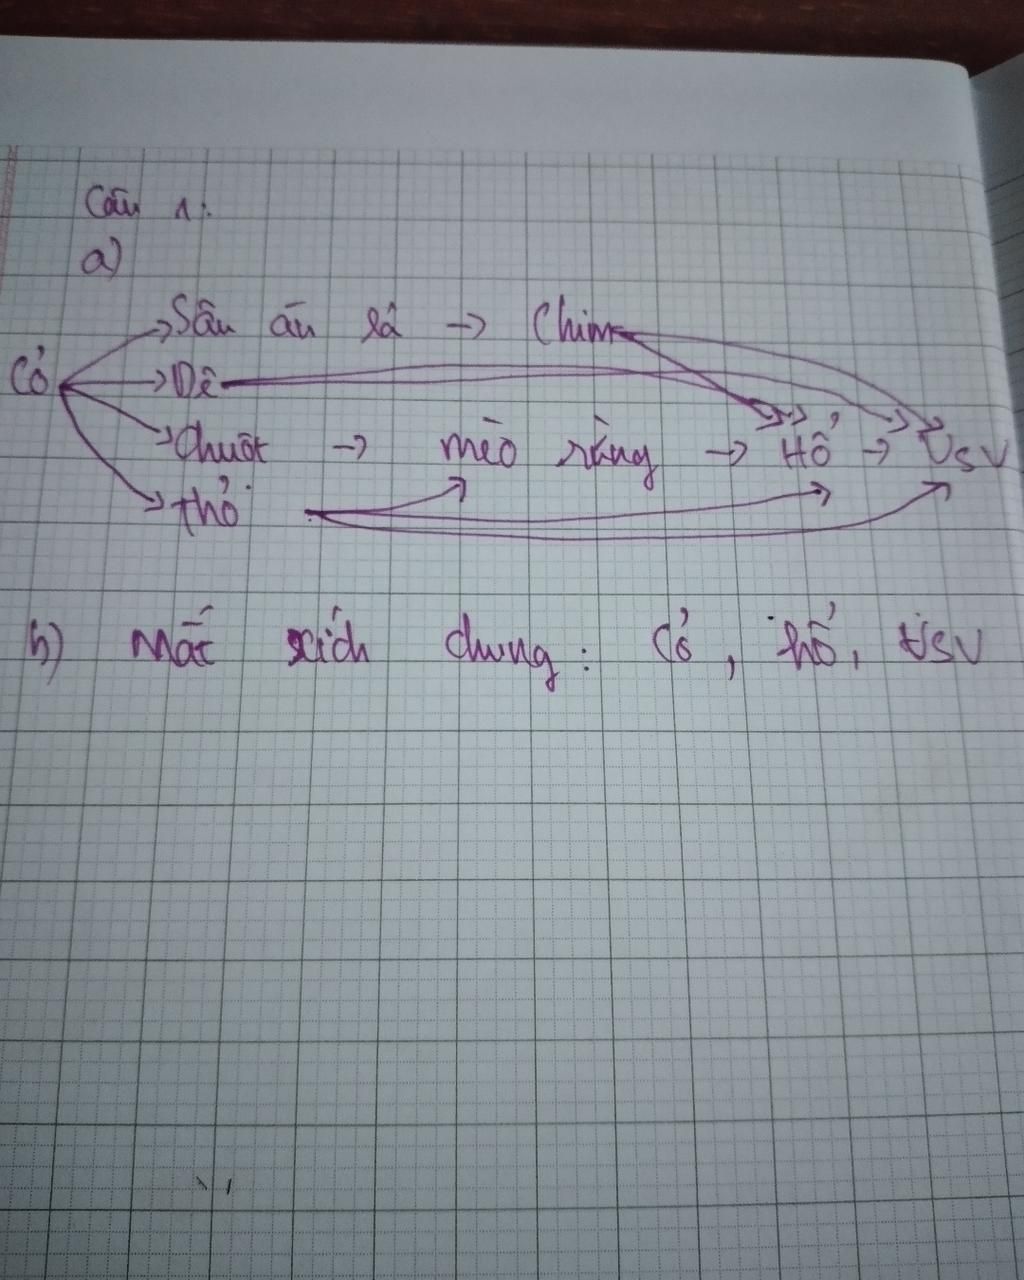 Câu 1:
a)
Sâu ăn lá → Chim
Cỏ → Dê
Chuột → mèo rừng → Hổ → VSV
thỏ
b) Mắt xích chung: Cỏ, hổ, VSV